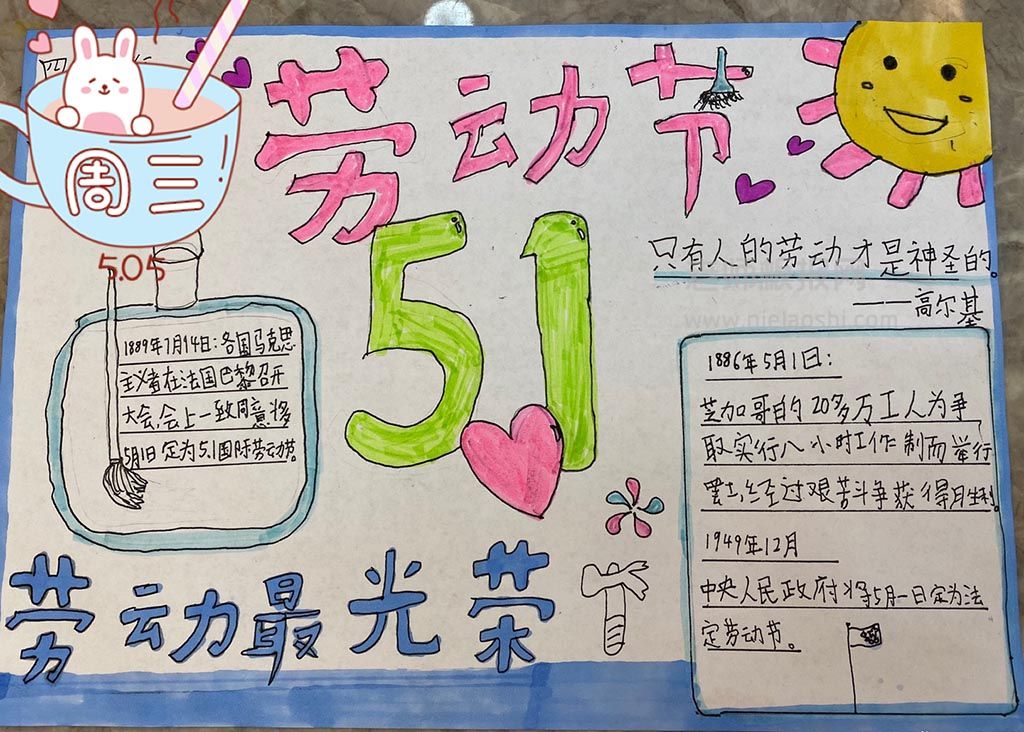 四
劳动节
周三
5.05
5.1
只有人的劳动才是神圣的。
——高尔基
www.nielaoshi.com
1889年7月14日:各国马克思
主义者在法国巴黎召开
大会,会上一致同意将
5月1日定为5.1国际劳动节。
1886年5月1日:
芝加哥的20多万工人为争
取实行八小时工作制而举行
罢工,经过艰苦斗争获得胜利。
1949年12月
中央人民政府将5月1日定为法
定劳动节。
劳动最光荣